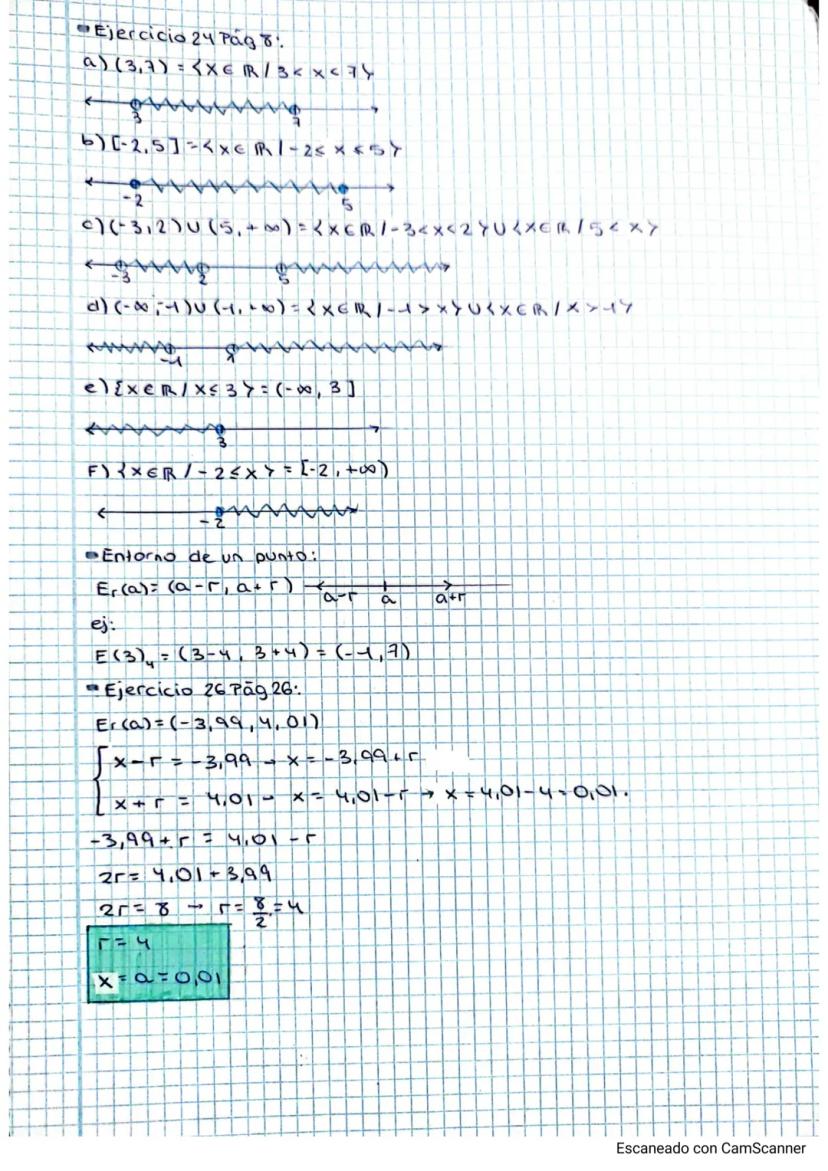 Ejercicio 24 Pág 8:
a) (3,7) = {x ∈ ℝ / 3 < x < 7}
3 7
b) [-2,5] = {x ∈ ℝ / -2 ≤ x ≤ 5}
-2 5
c) (-3,2) ∪ (5,+∞) = {x ∈ ℝ / -3 < x < 2} ∪ {x ∈ ℝ / 5 < x}
-3 2 5
d) (-∞,-1) ∪ (-1,+∞) = {x ∈ ℝ / -1 > x} ∪ {x ∈ ℝ / x > -1}
-1
e) {x ∈ ℝ / x ≤ 3} = (-∞, 3]
3
F) {x ∈ ℝ / -2 ≤ x} = [-2, +∞)
-2
Entorno de un punto:
Er(a) = (a-r, a+r) a-r a a+r
ej:
E(3)₄ = (3-4, 3+4) = (-1,7)
Ejercicio 26 Pág 26:
Er(a) = (-3,99, 4,01)
x-r = -3,99 → x = -3,99+r
x+r = 4,01 → x = 4,01-r → x = 4,01-4 = 0,01.
-3,99+r = 4,01-r
2r = 4,01+3,99
2r = 8 → r = 8/2 = 4
r = 4
x = a = 0,01
Escaneado con CamScanner